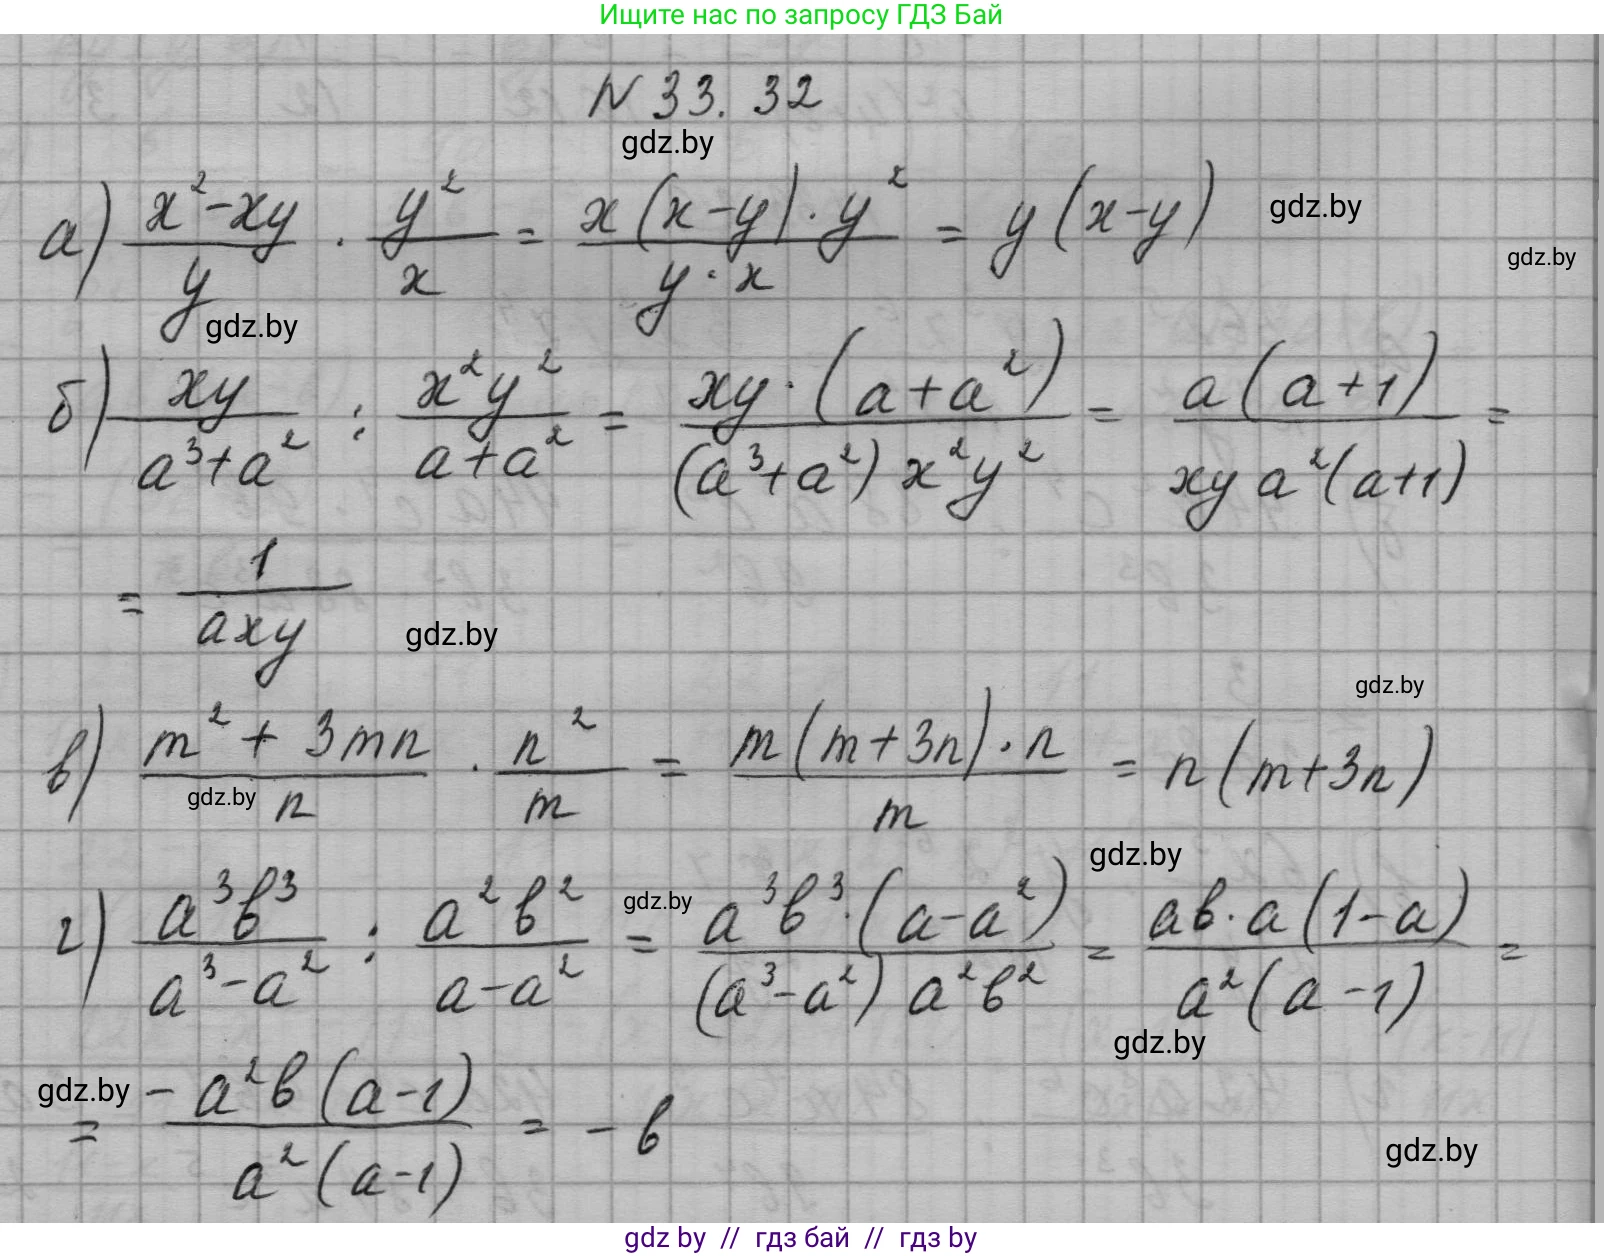 Ищите нас по запросу ГДЗ Бай
N 33. 32
gdz.by
а) (x² - xy)/y · y²/x = (x(x-y) · y²)/(y · x) = y(x-y) gdz.by
gdz.by
gdz.by
б) xy/(a³+a²) : x²y²/(a+a²) = (xy · (a+a²))/((a³+a²) x²y²) = (a(a+1))/(xy a²(a+1)) =
= 1/(axy) gdz.by
gdz.by
в) (m² + 3mn)/n · n²/m = (m(m+3n) · n)/m = n(m+3n)
gdz.by
gdz.by
г) a³b³/(a³-a²) : a²b²/(a-a²) gdz.by = (a³b³ · (a-a²))/((a³-a²) a²b²) = (ab · a(1-a))/(a²(a-1)) =
gdz.by
gdz.by
= (-a²b(a-1))/(a²(a-1)) = -b
gdz.by
gdz by // гдз бай // гдз by